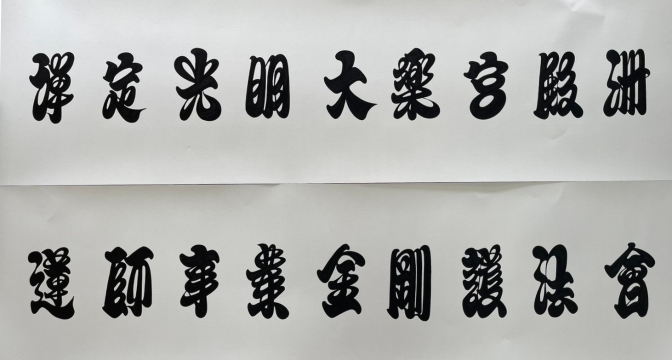 禪定光明大樂宮殿洲
蓮師事業金剛護法會